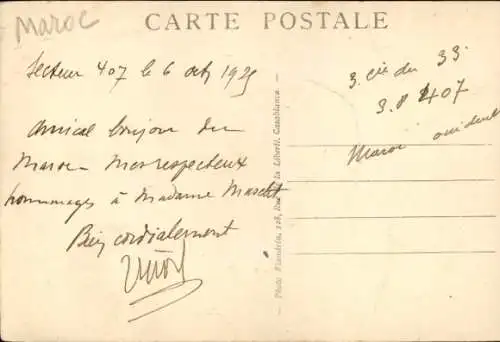 Maroc
CARTE POSTALE
Secteur 407 le 6 oct 1925
Amical bonjour du
Maroc - Mes respectueux
hommages à Madame
Bien cordialement
3. Cie du 33.
407
Maroc occident
Photo Flandrin, 128, Rue de la Liberté. Casablanca.